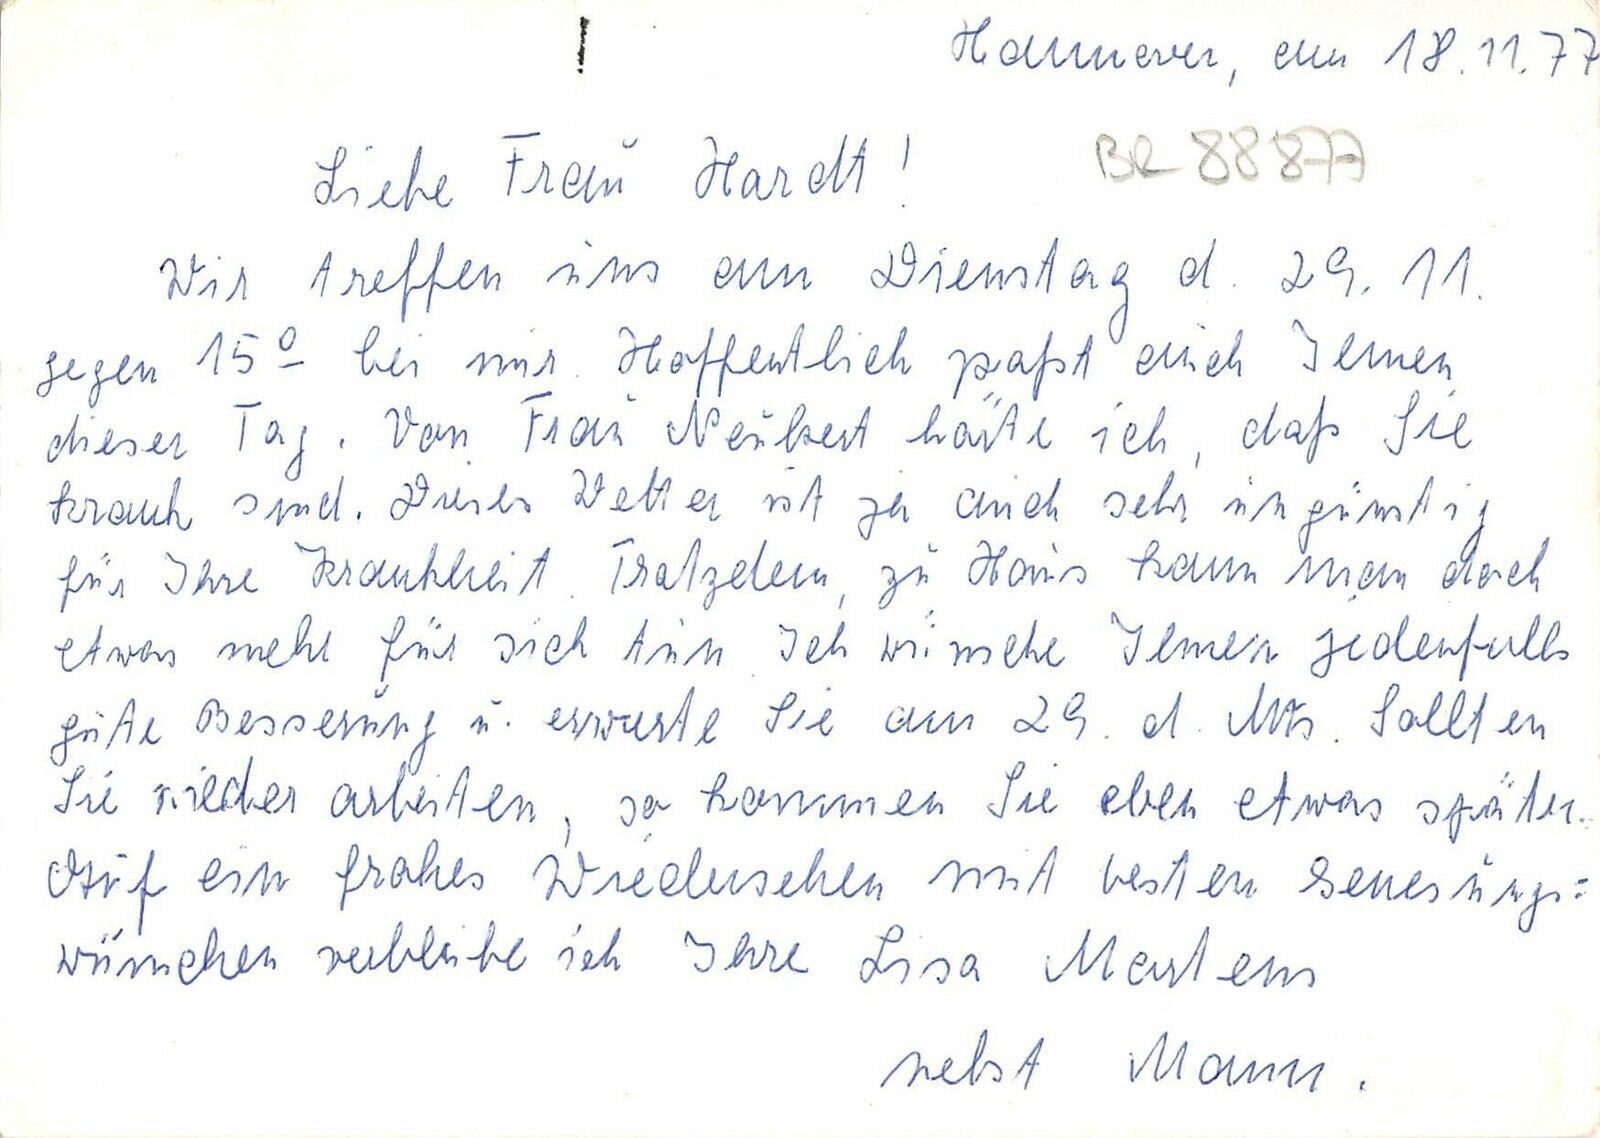 Hannover, am 18.11.77
BR 88877
Liebe Frau Hardt!
Wir treffen uns am Dienstag d. 29. 11.
gegen 15º bei mir. Hoffentlich paßt auch Ihnen
dieser Tag. Von Frau Neubert hörte ich, daß Sie
krank sind. Dieses Wetter ist ja auch sehr ungünstig
für Ihre Krankheit. Trotzdem, zu Haus kann man doch
etwas mehr für sich tun. Ich wünsche Ihnen jedenfalls
gute Besserung u. erwarte Sie am 29. d. Mts. Sollten
Sie wieder arbeiten, so kommen Sie eben etwas später.
Auf ein frohes Wiedersehen mit besten Genesungs=
wünschen verbleibe ich Ihre Lisa Martens
nebst Mann.